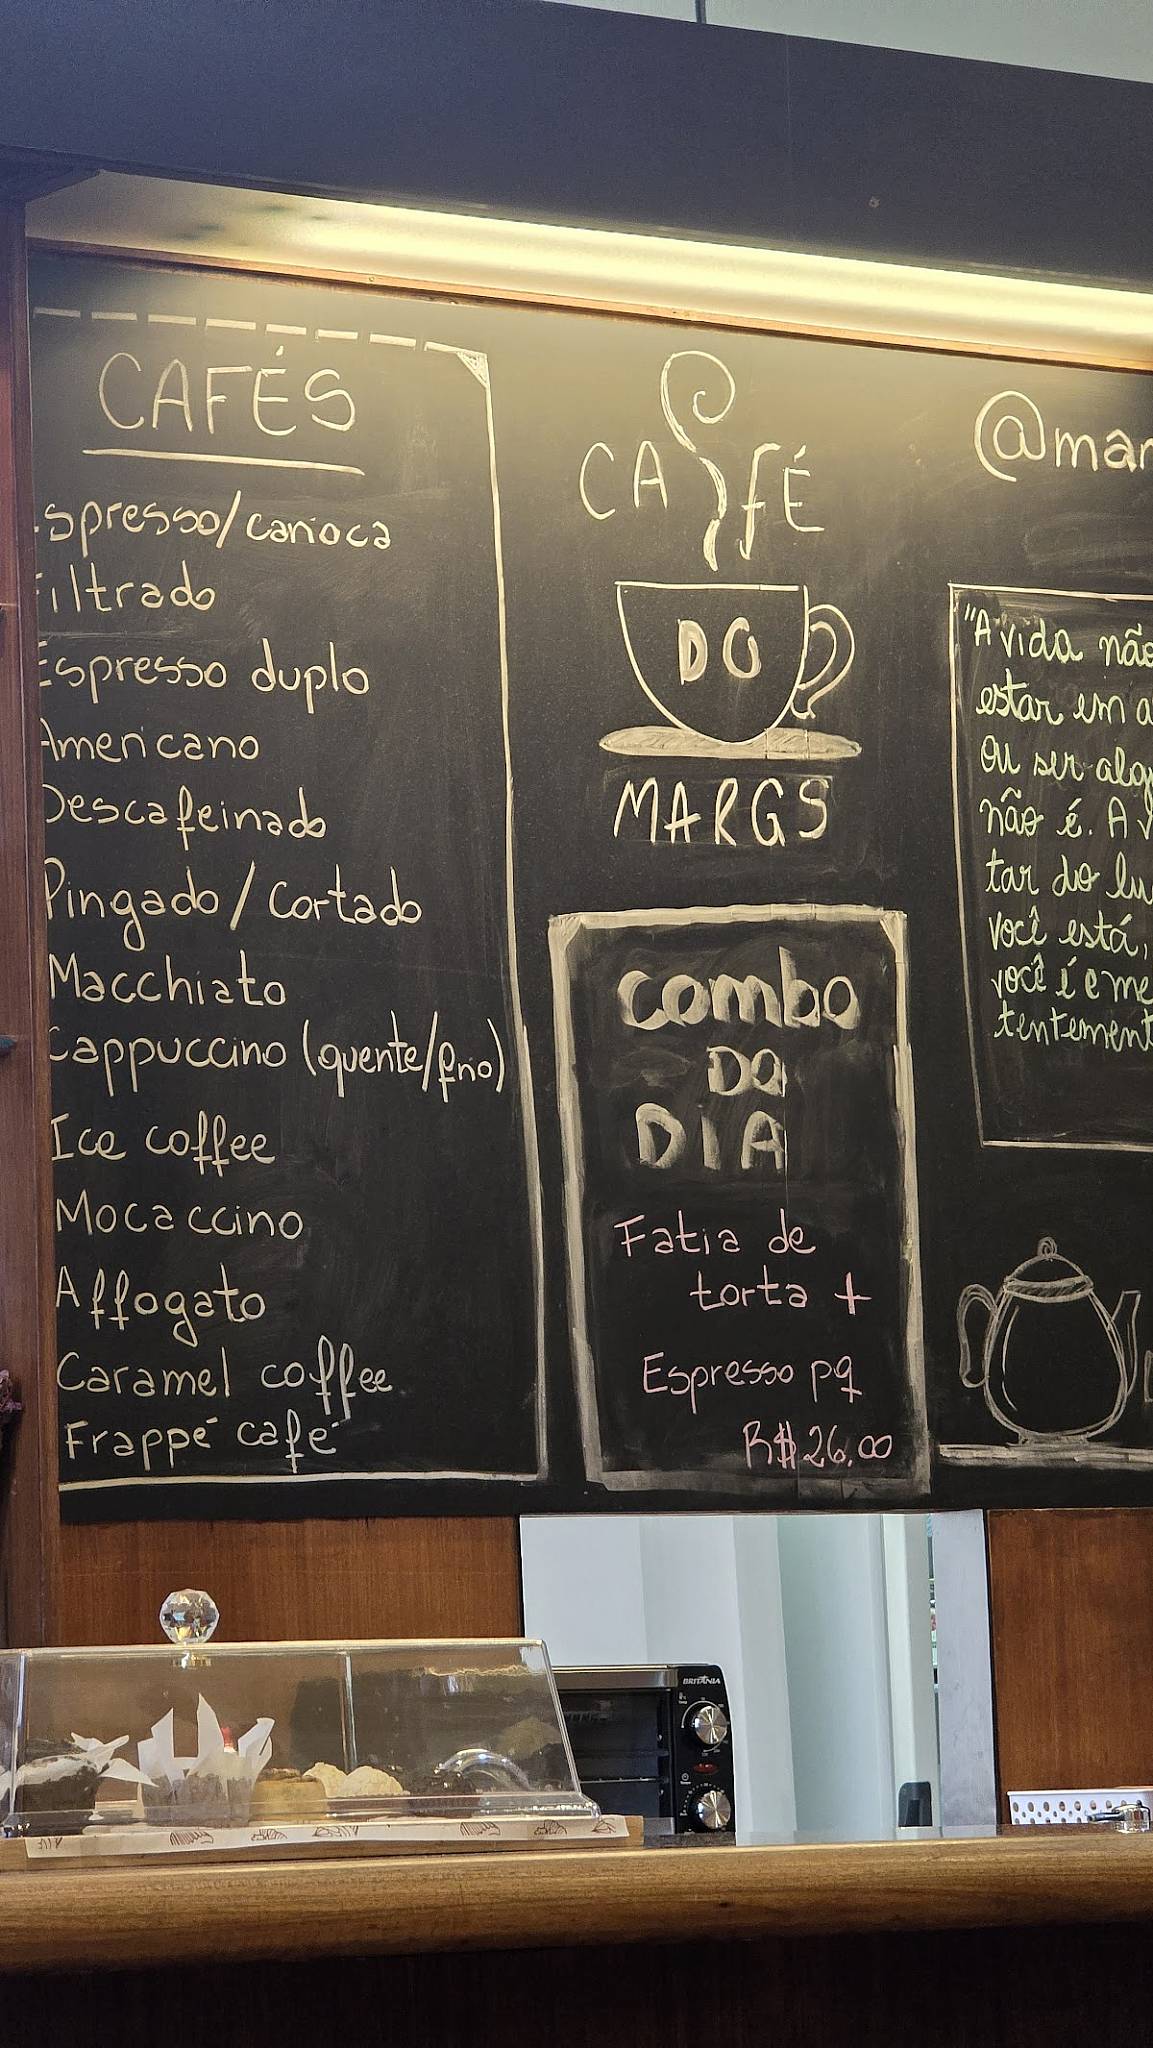 CAFÉS
Espresso/carioca
Filtrado
Espresso duplo
Americano
Descafeinado
Pingado / Cortado
Macchiato
Cappuccino (quente/frio)
Ice coffee
Mocaccino
Affogato
Caramel coffee
Frappé café
CAFÉ
DO
MARGS
combo
DO
DIA
Fatia de
torta +
Espresso pq
R$26,00
@mar
"A vida não
estar em a
ou ser alg
não é. A v
tar do lu
você está,
você é e me
tentement
BRITÂNIA